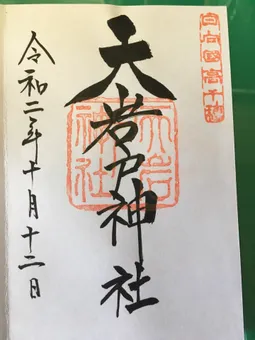 日向国高千穂
天岩戸神社
天岩
戸
神社
令和二年十月十二日